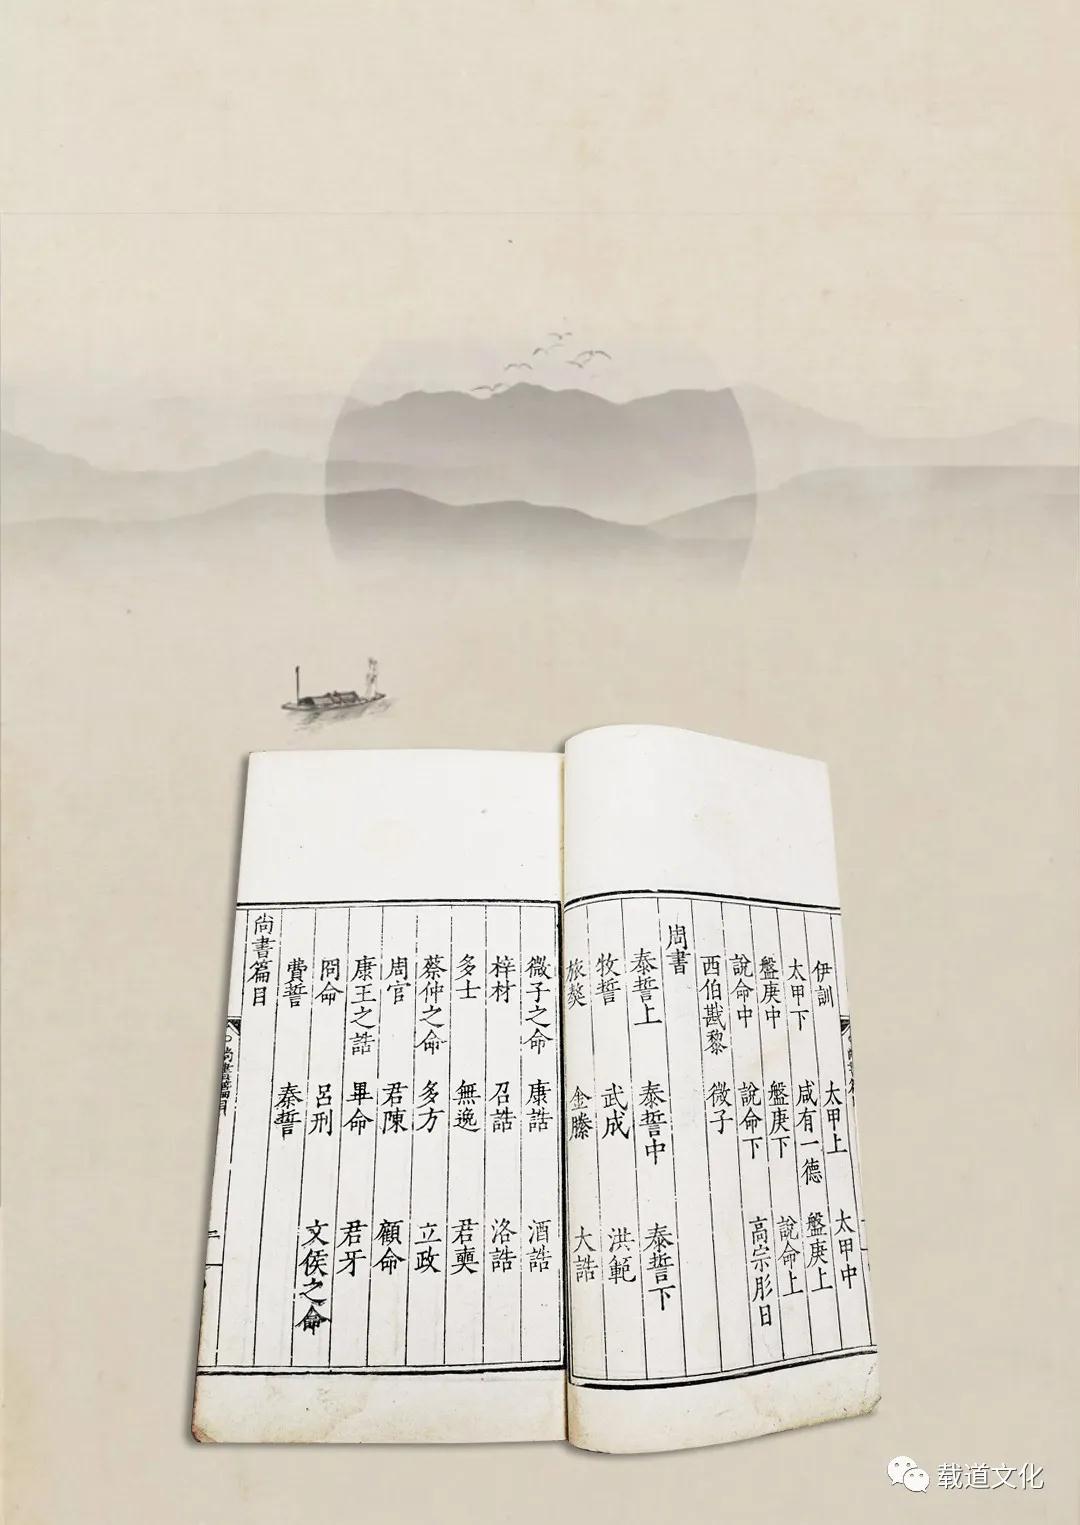 伊訓 太甲上 太甲中
太甲下 咸有一德 盤庚上
盤庚中 盤庚下 說命上
說命中 說命下 高宗肜日
西伯戡黎 微子
周書
泰誓上 泰誓中 泰誓下
牧誓 武成 洪範
旅獒 金縢 大誥
微子之命 康誥 酒誥
梓材 召誥 洛誥
多士 無逸 君奭
蔡仲之命 多方 立政
周官 君陳 顧命
康王之誥 畢命 君牙
冏命 呂刑 文侯之命
費誓 秦誓
尚書篇目
尚書篇目 二
载道文化